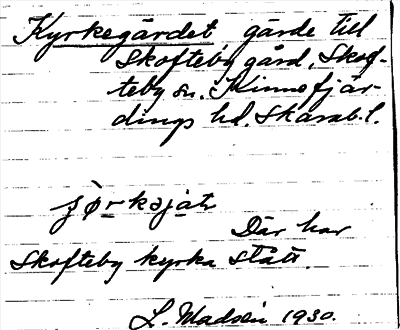 Kyrkegärdet gärde till
Skofteby gård, Skof-
teby sn. Kinnefjär-
dings hd. Skarab. l.
Där har
Skofteby kyrka stått.
1930.